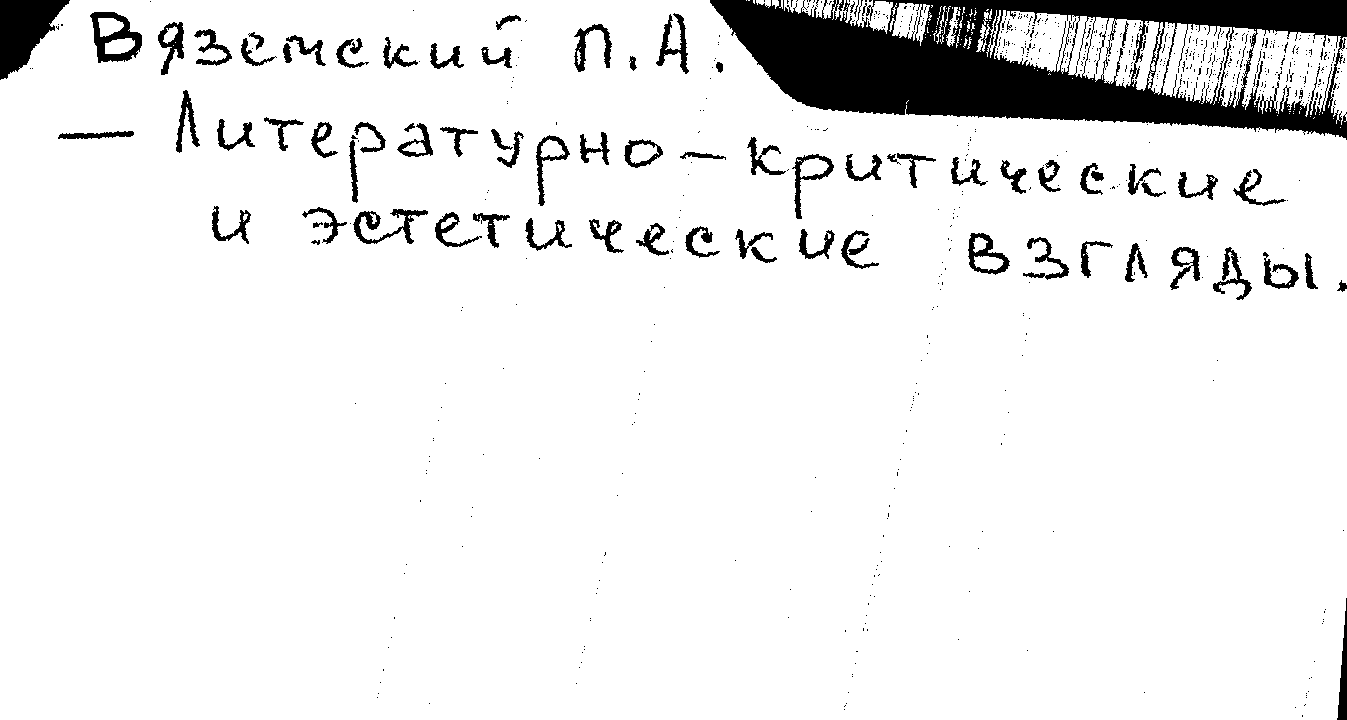 Вяземский П.А.
— Литературно-критические
и эстетические взгляды.